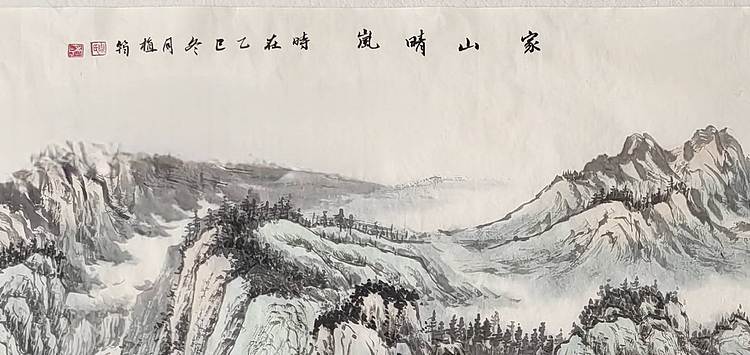 家山晴嵐 時在乙巳冬月植筠